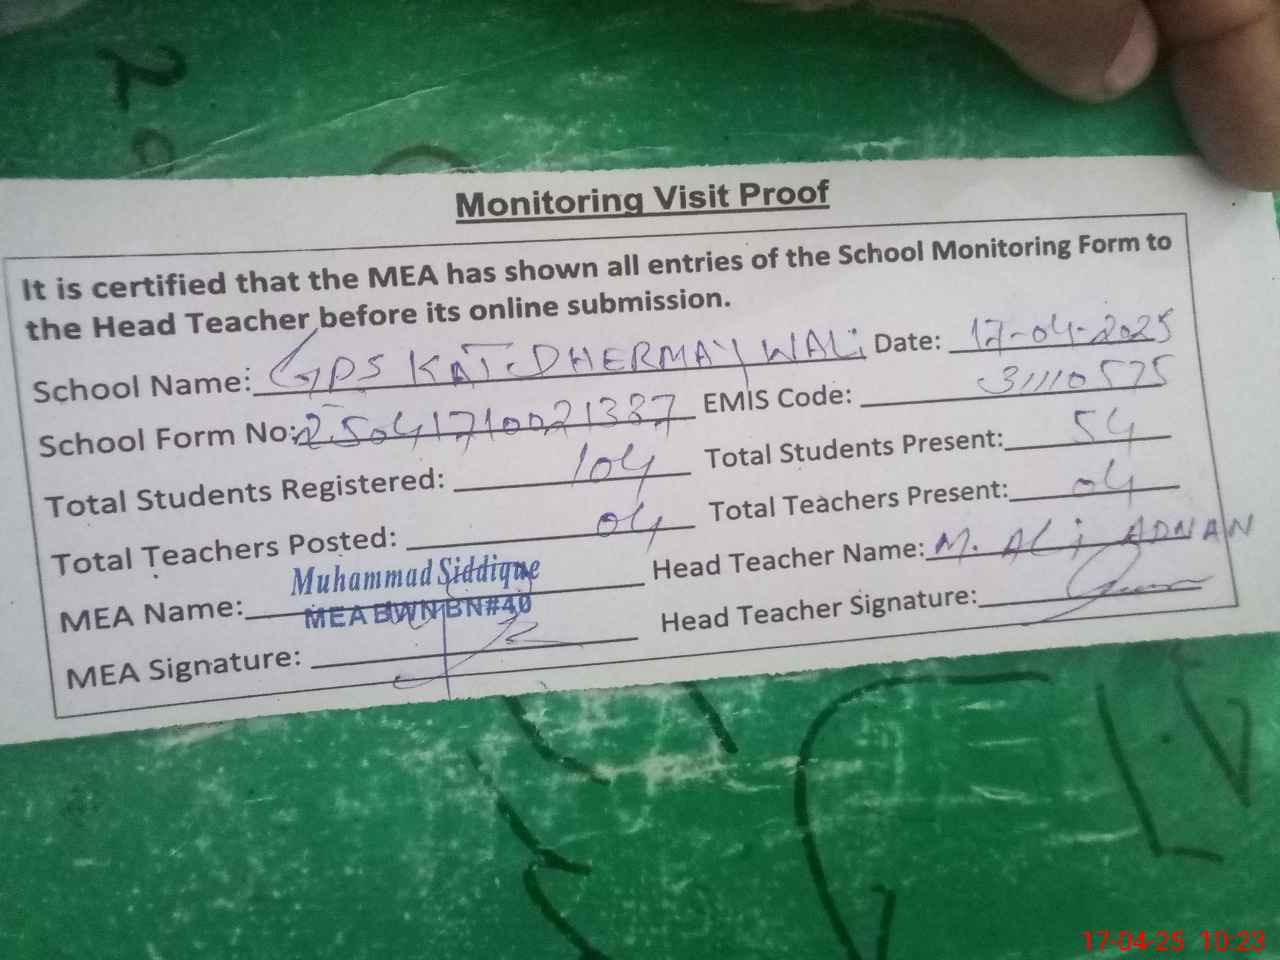 Monitoring Visit Proof
It is certified that the MEA has shown all entries of the School Monitoring Form to
the Head Teacher before its online submission.
School Name: GPS KAT DHERMAY WALi Date: 17-04-2025
School Form No: 25041710021387 EMIS Code: 31110575
Total Students Registered: 104 Total Students Present: 54
Total Teachers Posted: 04 Total Teachers Present: 04
MEA Name: Muhammad Siddique Head Teacher Name: M. ALi ADNAN
MEA BWN BN#40
MEA Signature: Head Teacher Signature:
17-04-25 10:23